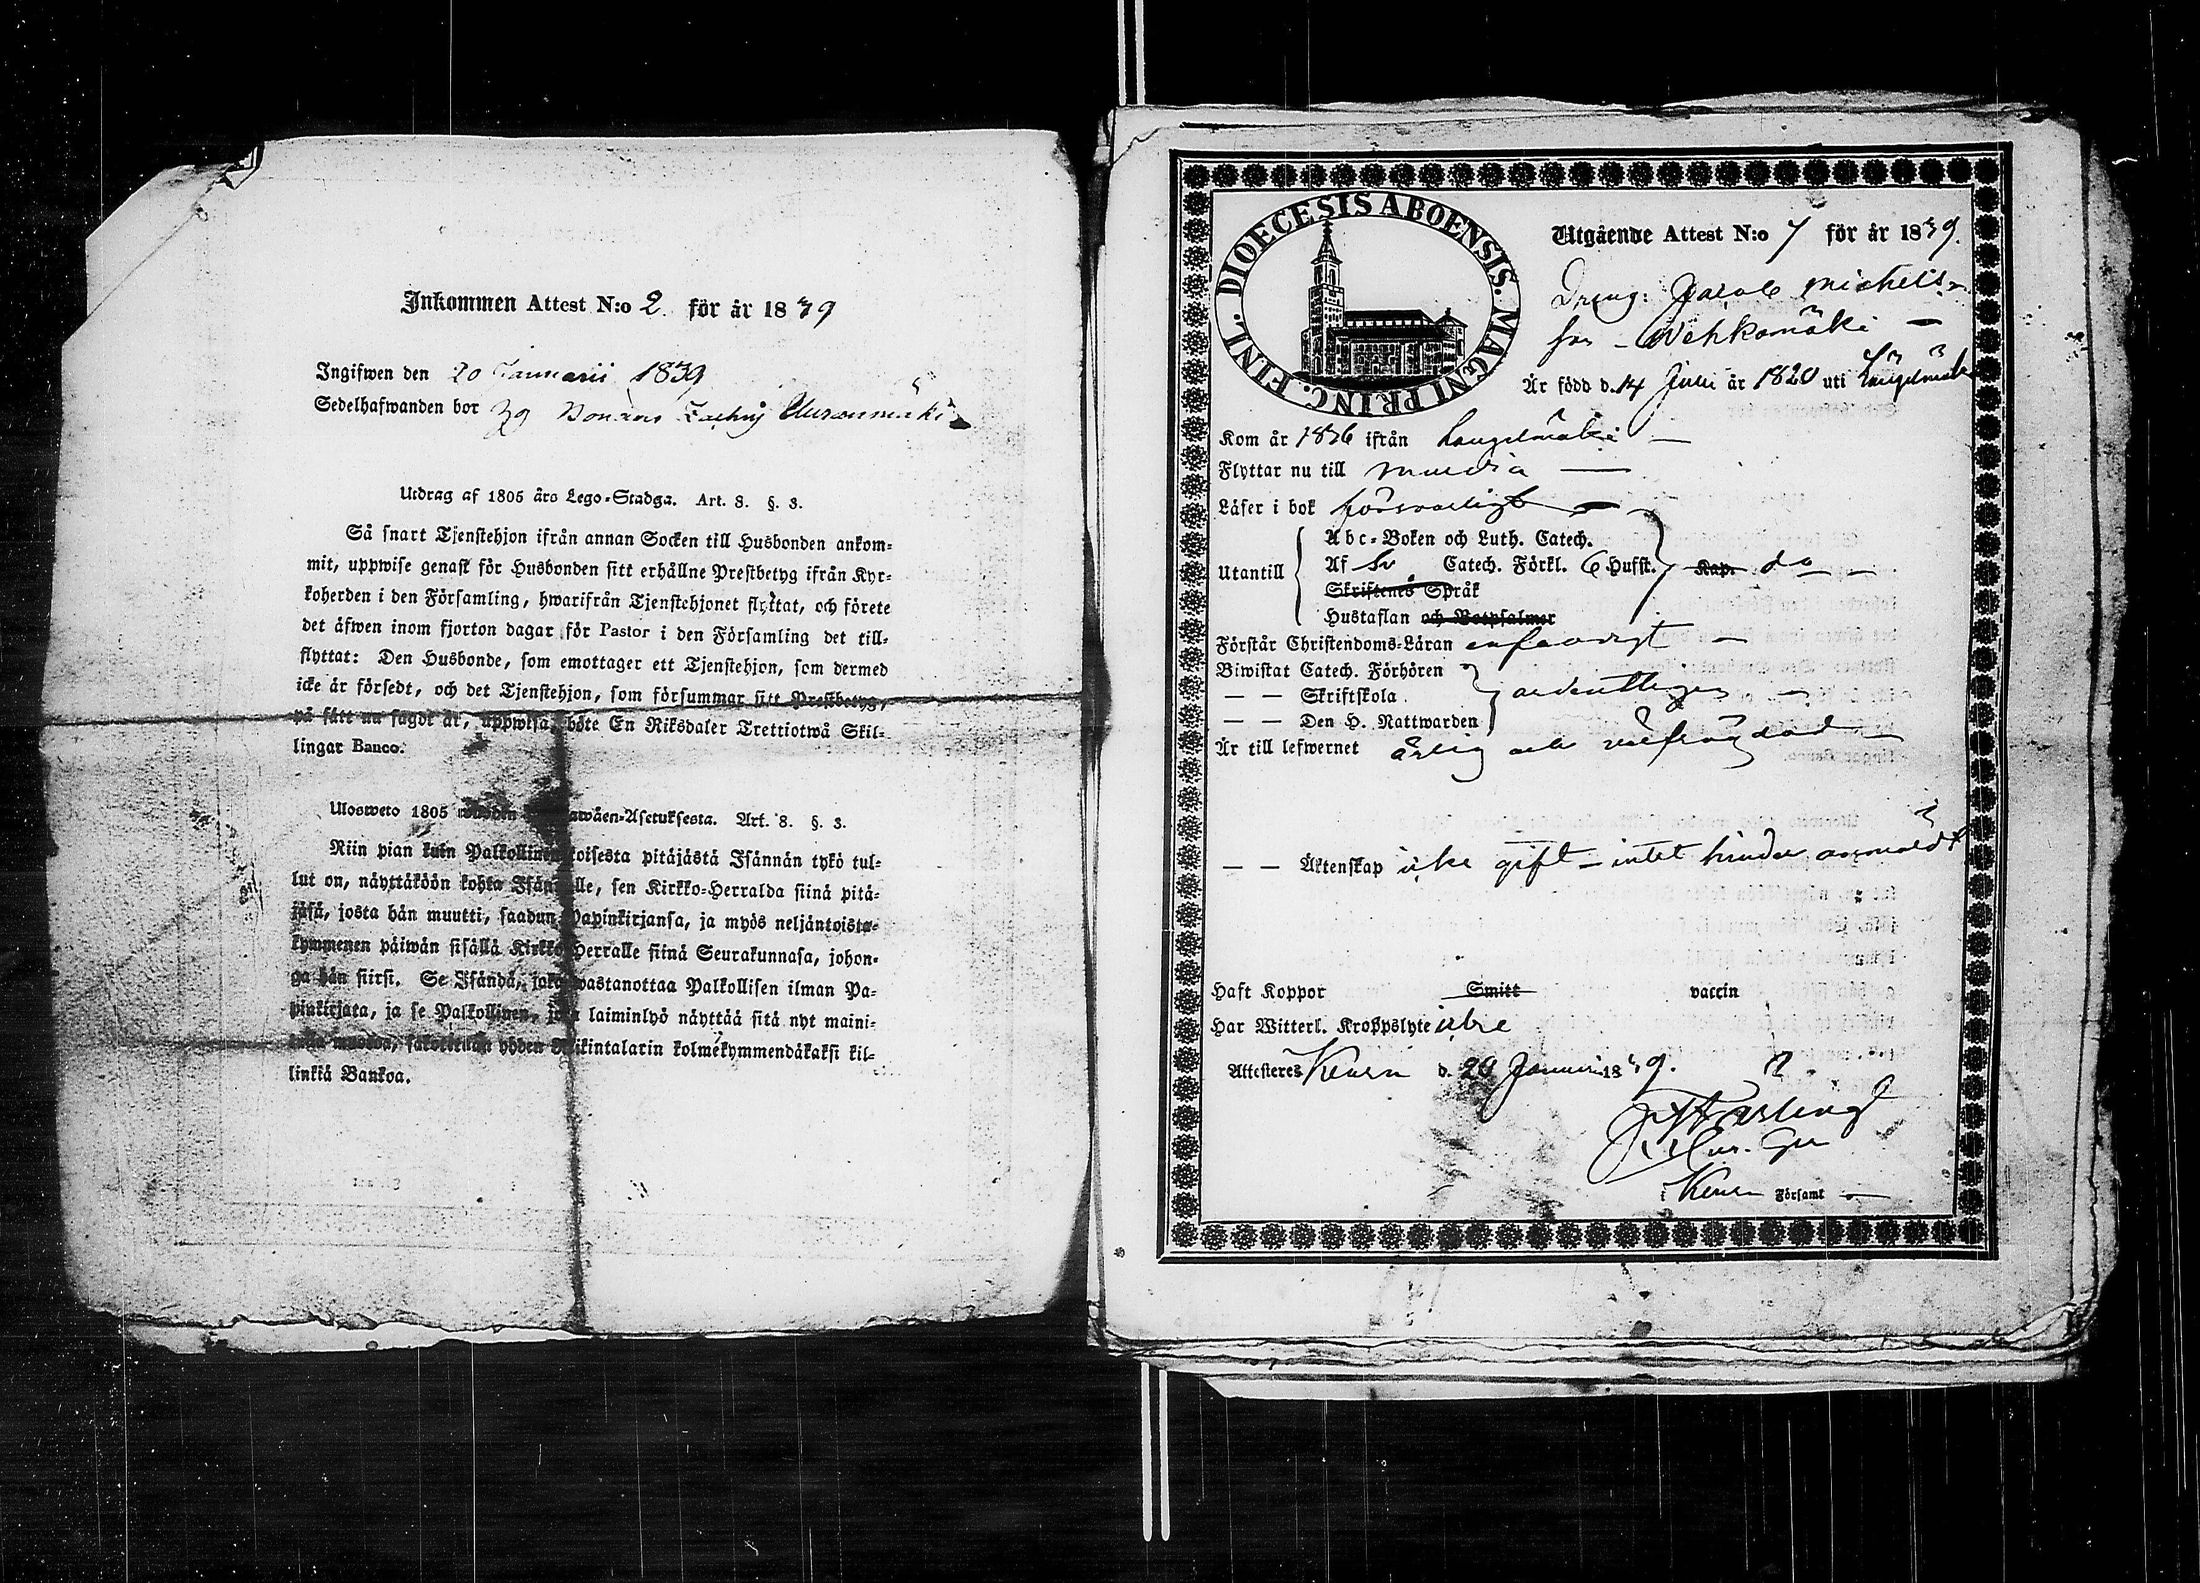 Inkommen Attest N:o 2. för år 1839
Ingifwen den 20 Januarii 1839
Sedelhafwanden bor
Utdrag af 1805 års Lego-Stadga. Art. 8. §. 3.
Så snart Tjenstehjon ifrån annan Socken till Husbonden ankom-
mit, uppwise genast för Husbonden sitt erhållne Prestbetyg ifrån Kyr-
koherden i den Församling, hwarifrån Tjenstehjonet flyttat, och förete
det äfwen inom fjorton dagar för Pastor i den Församling det till-
flyttat: Den Husbonde, som emottager ett Tjenstehjon, som dermed
icke är försedt, och det Tjenstehjon, som försummar sitt Prestbetyg,
på sätt nu sagdt är, uppwisa, böte En Riksdaler Trettiotwå Skil-
lingar Banco.
Ulosweto 1805 wuoden -Asetuksesta. Art. 8. §. 3.
Niin pian kuin Palkollinen toisesta pitäjästä Isännän tykö tul-
lut on, näyttäköön kohta Isännälle, sen Kirkko-Herralda siinä pitä-
jäsä, josta hän muutti, saadun Papinkirjansa, ja myös neljäntoista-
kymmenen päiwän sisällä Kirkko-Herralle siinä Seurakunnasa, johon-
ga hän siirsi. Se Isändä, joka wastanottaa Palkollisen ilman Pa-
pinkirjata, ja se Palkollinen, joka laiminlyö näyttää sitä nyt maini-
tulla muodolla, sakoitetaan yhden Riikintalarin kolmekymmendäkaksi kil-
linkiä Bankoa.
DIOECESIS ABOENSIS. MAGNI PRINC. FINL.
Utgående Attest N:o 7 för år 1839.
Dreng: Jacob Michels-
son - Wehkamäki -
Är född d. 14 Juli år 1820 uti Längelmäki
Kom år 1836 ifrån Längelmäki -
Flyttar nu till
Läser i bok försvarligt -
Utantill
Abc-Boken och Luth. Catech.
Af Sv Catech. Förkl. 6 Hufst. Kap. do -
Skriftenes Språk
Hustaflan och Botpsalmer
Förstår Christendoms-Läran enfaldigt -
Biwistat Catech. Förhören
— — Skriftskola ordentligen -
— — Den H. Nattwarden
Är till lefwernet ärlig och välfräjdad -
— — Äktenskap icke gift - intet hinder anmäldt
Haft Koppor Smitt vaccin
Har Witterl. Kroppslyte icke
Attesteres Keuru d. 20 Januarii 1839.
i Keuru Församl -